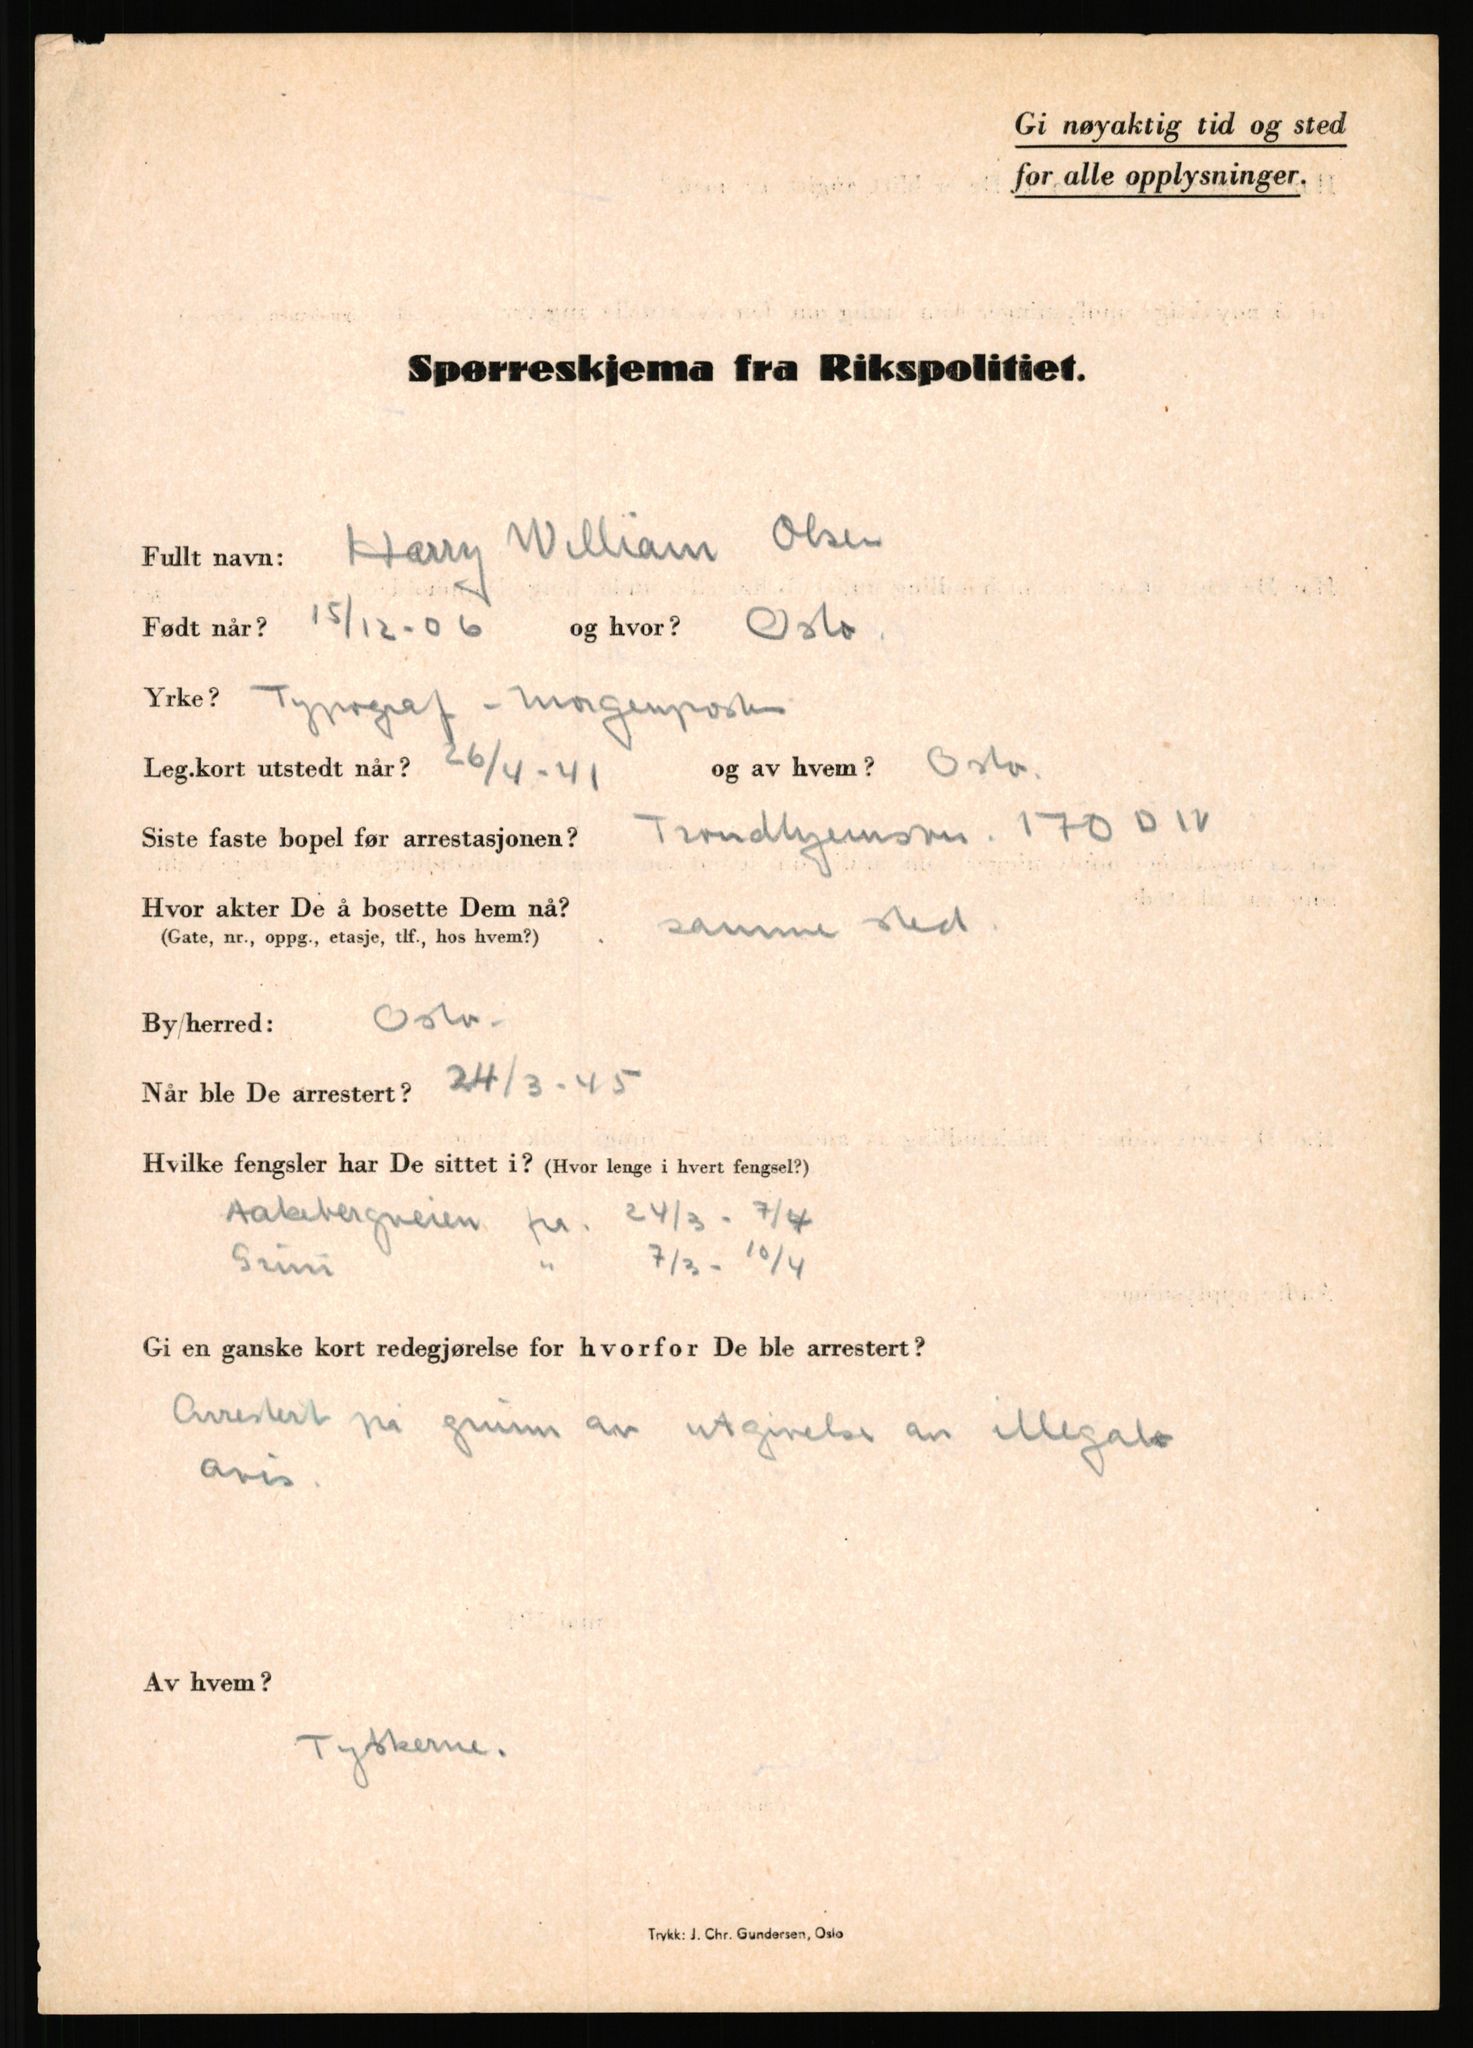 Gi nøyaktig tid og sted
for alle opplysninger.
Spørreskjema fra Rikspolitiet.
Fullt navn: Harry William Olsen
Født når? 15/12-06 og hvor? Oslo.
Yrke? Typograf - Morgenposten
Leg.kort utstedt når? 26/4-41 og av hvem? Oslo.
Siste faste bopel før arrestasjonen? Trondhjemsvn. 170 D IV
Hvor akter De å bosette Dem nå? samme sted.
(Gate, nr., oppg., etasje, tlf., hos hvem?)
By/herred: Oslo.
Når ble De arrestert? 24/3-45
Hvilke fengsler har De sittet i? (Hvor lenge i hvert fengsel?)
Aakebergveien fra. 24/3 - 7/4
Grini " 7/3 - 10/4
Gi en ganske kort redegjørelse for hvorfor De ble arrestert?
Arrestert på grunn av utgivelse av illegale
avis.
Av hvem?
Tyskerne.
Trykk: J. Chr. Gundersen, Oslo